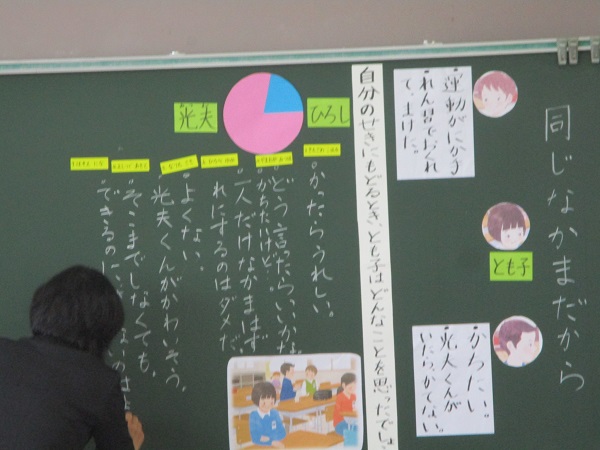 同じなかまだから
運動がにが手
れん習でおくれ
て、上げた。
とも子
かちたい。
光夫くんが
いたら、かてない。
自分のせきにもどるとき、とも子はどんなことを思ったでしょ
ひろし
光夫
かったらうれしい。
どう言ったらいいかな。
かちたいけど。
一人だけなかまはず
れにするのはダメだ。
よくない。
光夫くんがかわいそう。
そこまでしなくても。
できるのに